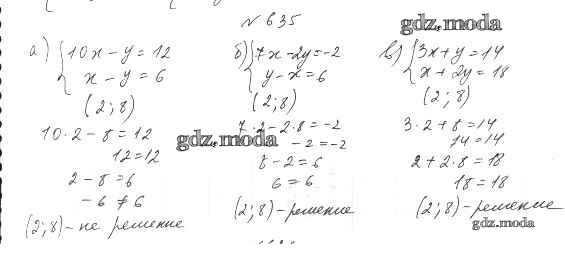 № 635
gdz.moda
а) { 10x - y = 12
x - y = 6
(2; 8)
10·2 - 8 = 12
12 = 12
2 - 8 = 6
-6 ≠ 6
(2; 8) - не решение
б) { 7x - 2y = -2
y - x = 6
(2; 8)
7·2 - 2·8 = -2
gdz.moda
-2 = -2
8 - 2 = 6
6 = 6
(2; 8) - решение
в) { 3x + y = 14
x + 2y = 18
(2; 8)
3·2 + 8 = 14
14 = 14
2 + 2·8 = 18
18 = 18
(2; 8) - решение
gdz.moda